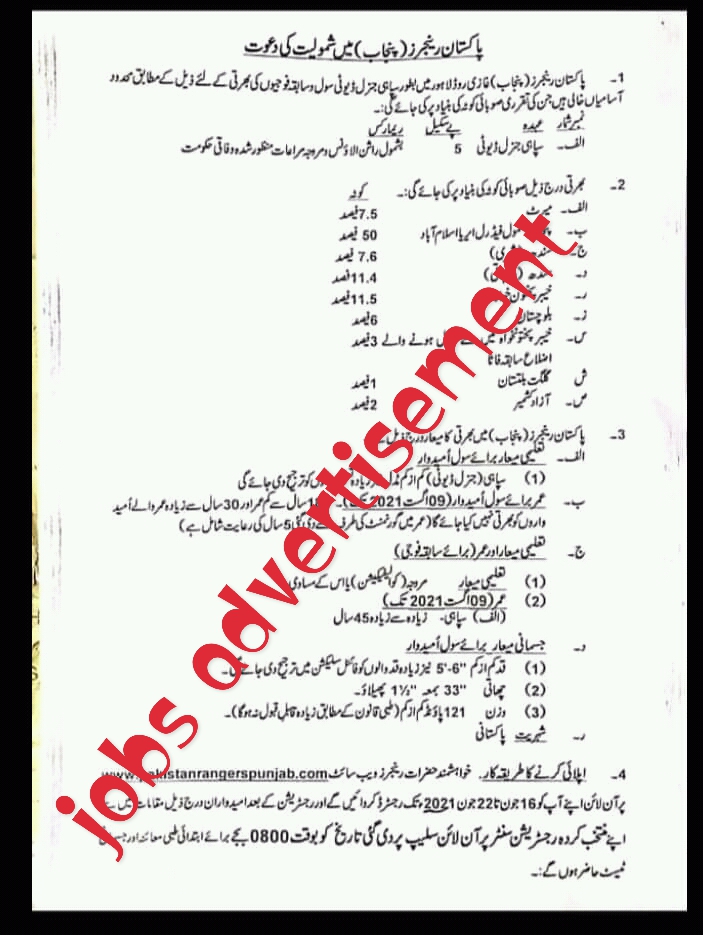 پاکستان رینجرز (پنجاب) میں شمولیت کی دعوت
1۔ پاکستان رینجرز (پنجاب) غازی روڈ لاہور میں بطور سپاہی جنرل ڈیوٹی سول و سابقہ فوجیوں کی بھرتی کے لئے ذیل کے مطابق محدود
آسامیاں خالی ہیں جن کی تقرری صوبائی کوٹہ کی بنیاد پر کی جائے گی:۔
نمبر شمار عہدہ پے سکیل ریمارکس
الف۔ سپاہی جنرل ڈیوٹی 5 بشمول راشن الاؤنس و مروجہ مراعات منظور شدہ وفاقی حکومت
2۔ بھرتی درج ذیل صوبائی کوٹہ کی بنیاد پر کی جائے گی:۔ کوٹہ
الف۔ میرٹ 7.5 فیصد
ب۔ فیڈرل ایریا اسلام آباد 50 فیصد
ج۔ 7.6 فیصد
د۔ سندھ 11.4 فیصد
ر۔ خیبر پختون 11.5 فیصد
ز۔ بلوچستان 6 فیصد
س۔ خیبر پختونخواہ میں ہونے والے 3 فیصد
اضلاع سابقہ فاٹا
ش گلگت بلتستان 1 فیصد
ص۔ آزاد کشمیر 2 فیصد
3۔ پاکستان رینجرز (پنجاب) میں بھرتی کا معیار درج ذیل
الف۔ تعلیمی معیار برائے سول اُمیدوار
(1) سپاہی (جنرل ڈیوٹی) کم از کم مڈل زیادہ کو ترجیح دی جائے گی
ب۔ عمر برائے سول اُمیدوار (09 اگست 2021 تک)۔ سال سے کم عمر اور 30 سال سے زیادہ عمر والے اُمید
واروں کو بھرتی نہیں کیا جائے گا (عمر میں گورنمنٹ کی طرف سے دی گئی 5 سال کی رعایت شامل ہے)
ج۔ تعلیمی معیار اور عمر (برائے سابقہ فوجی)
(1) تعلیمی معیار مروجہ (کوالیفیکیشن) یا اس کے مساوی
(2) عمر (09 اگست 2021 تک)
(الف) سپاہی۔ زیادہ سے زیادہ 45 سال
د۔ جسمانی معیار برائے سول اُمیدوار
(1) قد کم از کم 5'-6" نیز زیادہ قد والوں کو فائنل سلیکشن میں ترجیح دی جائے گی۔
(2) چھاتی 33" بمعہ 1½" پھیلاؤ۔
(3) وزن 121 پاؤنڈ کم از کم (طبی قانون کے مطابق زیادہ قابل قبول نہ ہوگا)۔
ر۔ شہریت پاکستانی
4۔ اپلائی کرنے کا طریقہ کار۔ خواہشمند حضرات رینجرز ویب سائٹ www.pakistanrangerspunjab.com
پر آن لائن اپنے آپ کو 16 جون تا 22 جون 2021 تک رجسٹرڈ کروائیں گے اور رجسٹریشن کے بعد امیدواران درج ذیل مقامات میں سے
اپنے منتخب کردہ رجسٹریشن سنٹر پر آن لائن سلیپ پر دی گئی تاریخ کو بوقت 0800 بجے برائے ابتدائی طبی معائنہ اور جسمانی
ٹیسٹ حاضر ہوں گے:۔
jobs advertisement